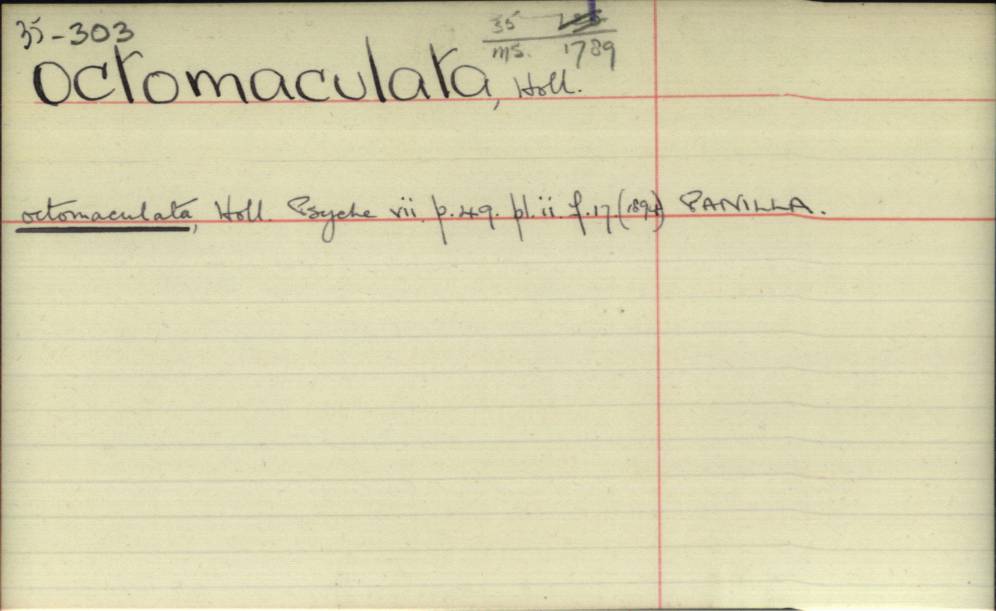 35-303
35
ms. 1789
octomaculata, Holl.
octomaculata, Holl. Psyche vii. p.49. pl.ii. f.17 (1894) PANILLA.